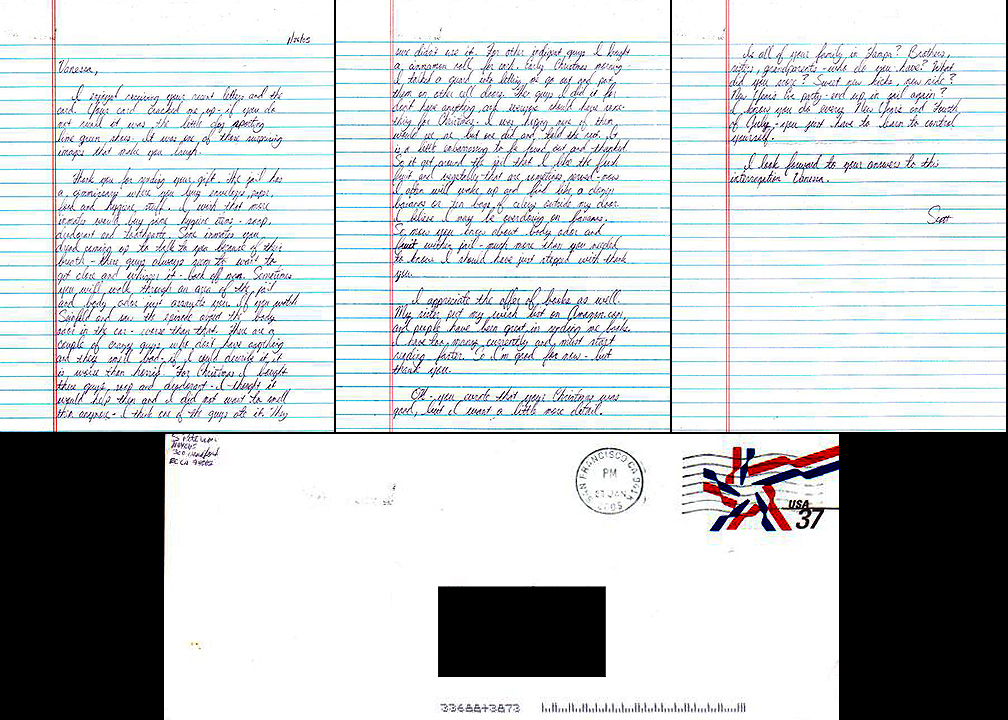 1/26/05
Vanessa,
I enjoyed receiving your recent letters and the
card. Your card cracked me up - if you do
not recall it was the little dog sporting
lime green shoes. It was one of those surprising
images that make you laugh.
Thank you for sending your gift. The jail has
a commissary where you buy envelopes, paper,
food and hygiene stuff. I wish that more
inmates would buy some hygiene items - soap,
deodorant and toothpaste. Some inmates you
dread coming up to talk to you because of their
breath - these guys always seem to want to
get close and whisper it - back off man. Sometimes
you will walk through an area of the jail
and body odor just assaults you. If you watch
Seinfeld and saw the episode about the body
odor in the car - worse than that. There are a
couple of crazy guys who don't have anything
and they smell bad - if I could describe it, it
is worse than horrid. For Christmas I bought
these guys soap and deodorant - I thought it
would help them and I did not want to smell
them anymore - I think one of the guys ate it. They
sure didn't use it. For other indigent guys I bought
a cinnamon roll for each. Early Christmas morning
I talked a guard into letting me go out and put
them on other cell doors. The guys I did it for
don't have anything and everyone should have some-
thing for Christmas. I was hoping none of them
would see me but one did and told the rest. It
is a little embarrassing to be found out and thanked.
So it got around the jail that I like the fresh
fruit and vegetables that are sometimes served - now
I often will wake up and find like a dozen
bananas or ten bags of celery outside my door.
I believe I may be overdosing on bananas.
So now you know about body odor and
fruit within jail - much more than you needed
to know. I should have just stopped with thank
you.
I appreciate the offer of books as well.
My sister put my wish list on Amazon.com,
and people have been great in sending me books.
I have too many currently and must start
reading faster. So I'm good for now - but
thank you.
OK - you wrote that your Christmas was
good, but I want a little more detail.
Is all of your family in Tampa? Brothers,
sisters, grandparents - who do you have? What
did you score? Sweet new kicks, new ride?
New Years Eve party - end up in jail again?
I know you do every New Years and Fourth
of July - you just have to learn to control
yourself.
I look forward to your answers to this
interrogation Vanessa.
Scott
S Peterson
300 Bradford
RC CA
SAN FRANCISCO CA 941
PM
27 JAN
2005
USA
37
33688+3873